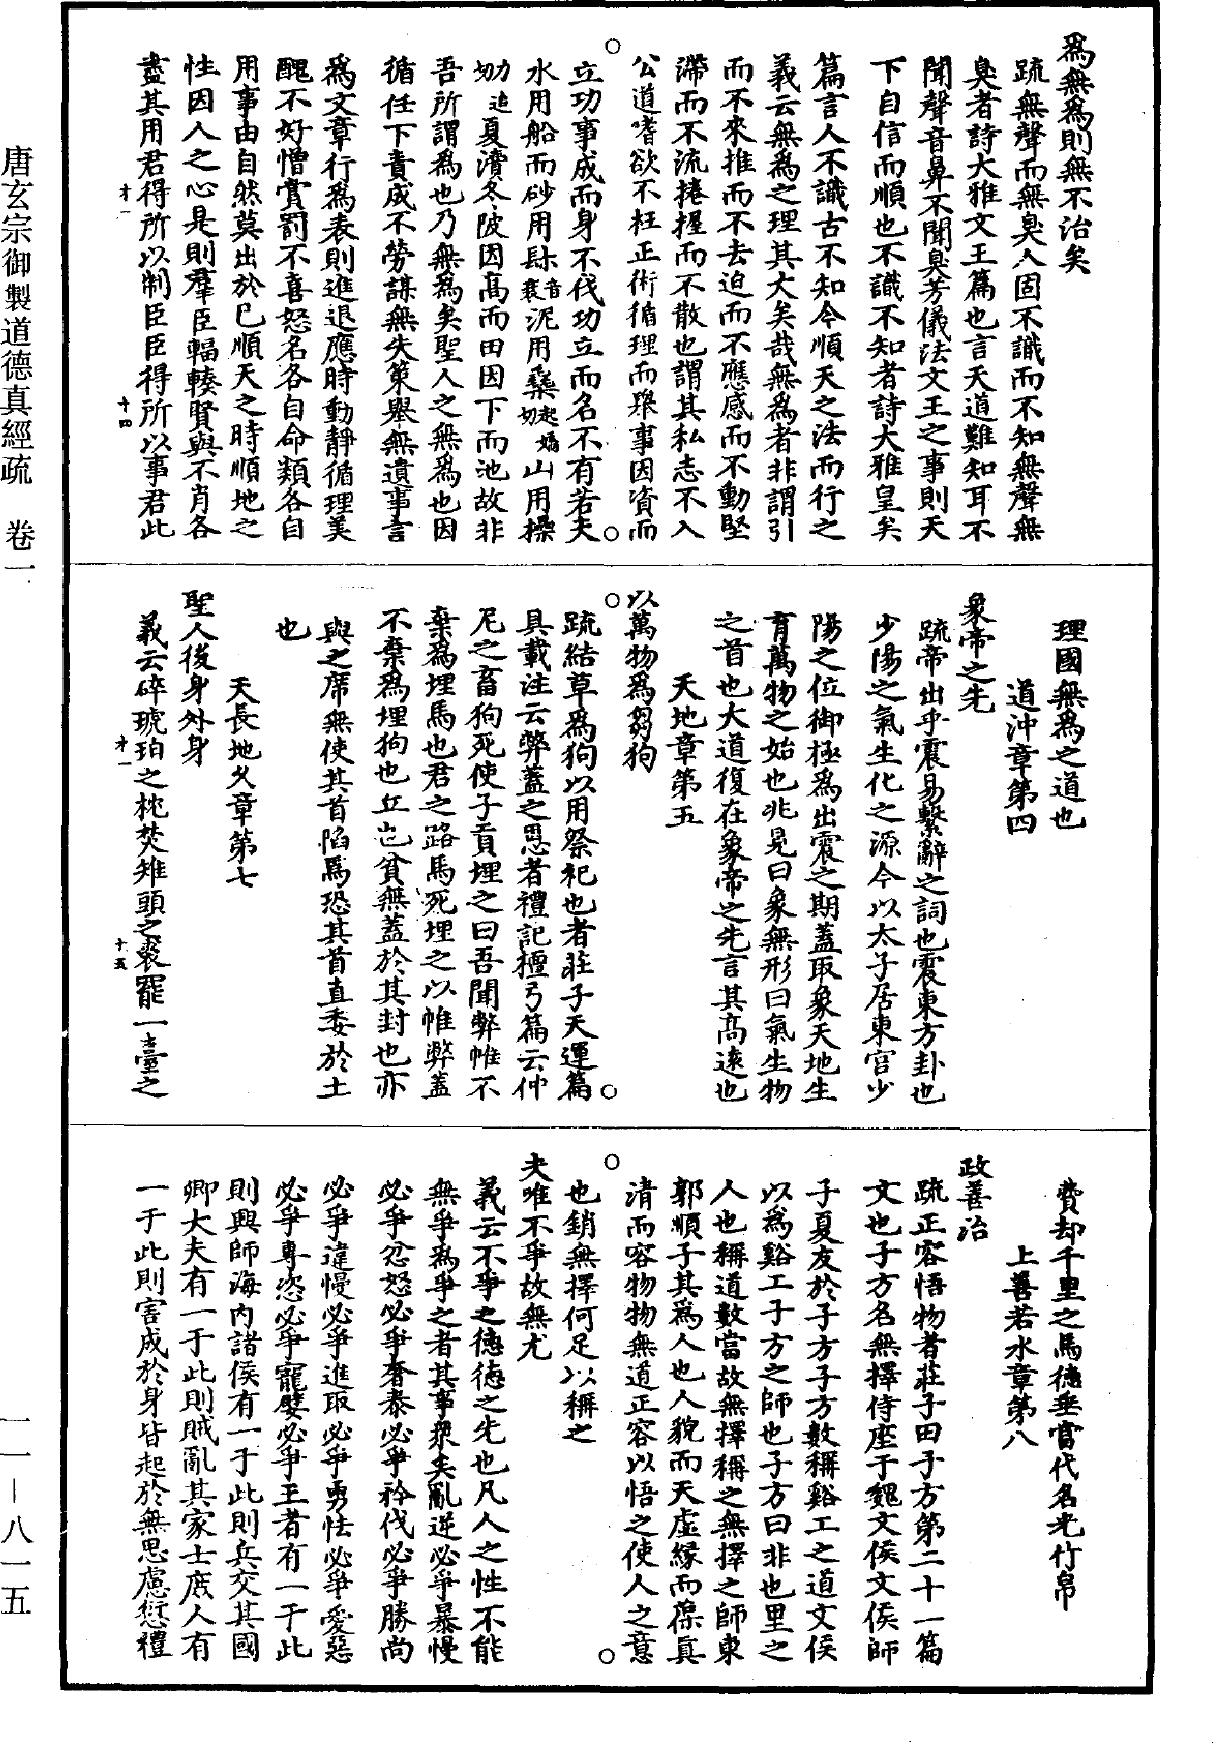 爲無爲則無不治矣
疏無聲而無臭人固不識而不知無聲無
臭者詩大雅文王篇也言天道難知耳不
聞聲音鼻不聞臭芳儀法文王之事則天
下自信而順也不識不知者詩大雅皇矣
篇言人不識古不知今順天之法而行之
義云無爲之理其大矣哉無爲者非謂引
而不來推而不去迫而不應感而不動堅
滯而不流捲握而不散也謂其私志不入
公道嗜欲不枉正術循理而舉事因資而
立功事成而身不伐功立而名不有若夫
水用船而砂用𨁝音裹泥用蕝起嬌切山用樏
追切夏瀆冬陂因高而田因下而池故非
吾所謂爲也乃無爲矣聖人之無爲也因
循任下責成不勞謀無失策舉無遺事言
爲文章行爲表則進退應時動靜循理美
醜不好憎賞罰不喜怒名各自命類各自
用事由自然莫出於己順天之時順地之
性因人之心是則羣臣輻輳賢與不肖各
盡其用君得所以制臣臣得所以事君此
才一 十四
理國無爲之道也
道沖章第四
象帝之先
疏帝出乎震易繫辭之詞也震東方卦也
少陽之氣生化之源今以太子居東宫少
陽之位御極爲出震之期蓋取象天地生
育萬物之始也兆見曰象無形曰氣生物
之首也大道復在象帝之先言其高遠也
天地章第五
以萬物爲芻狗
疏結草爲狗以用祭祀也者莊子天運篇
具載注云弊蓋之恩者禮記檀弓篇云仲
尼之畜狗死使子貢埋之曰吾聞弊帷不
棄爲埋馬也君之路馬死埋之以帷弊蓋
不棄爲埋狗也丘也貧無蓋於其封也亦
與之席無使其首陷焉恐其首直委於土
也
天長地久章第七
聖人後身外身
義云碎琥珀之枕焚雉頭之裘罷一臺之
才一 十五
費却千里之馬德垂當代名光竹帛
上善若水章第八
政善治
疏正容悟物者莊子田子方第二十一篇
文也子方名無擇侍座于魏文侯文侯師
子夏友於子方子方數稱谿工之道文侯
以爲谿工子方之師也子方曰非也里之
人也稱道數當故無擇稱之無擇之師東
郭順子其爲人也人貌而天虛緣而葆眞
清而容物物無道正容以悟之使人之意
也銷無擇何足以稱之
夫唯不爭故無尤
義云不爭之德德之先也凡人之性不能
無爭爲爭之者其事衆矣亂逆必爭暴慢
必爭忿怒必爭奢泰必爭矜伐必爭勝尚
必爭違慢必爭進取必爭勇怯必爭愛惡
必爭專恣必爭寵嬖必爭王者有一于此
則興師海內諸侯有一于此則兵交其國
卿大夫有一于此則賊亂其家士庶人有
一于此則害成於身皆起於無思慮愆禮
唐玄宗御製道德真經疏 卷一
一一－八一五